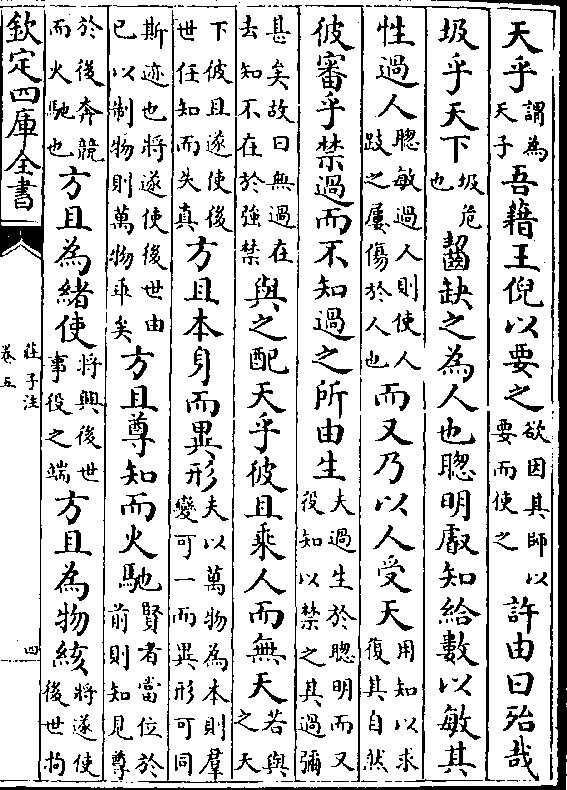 天乎謂為天子吾藉王倪以要之欲因其師以要而使之許由曰殆哉
圾乎天下圾危也齧缺之為人也聰明叡知給數以敏其
性過人聰敏過人則使人跂之屢傷於人也而又乃以人受天用知以求復其自然
彼審乎禁過而不知過之所由生夫過生於聰明而又役知以禁之其過彌
甚矣故曰無過在去知不在於強禁與之配天乎彼且乘人而無天若與之天
下彼且遂使後世任知而失真方且本身而異形夫以萬物為本則羣變可一而異形可同
斯迹也將遂使後世由已以制物則萬物乖矣方且尊知而火馳賢者當位於前則知見尊
於後奔競而火馳也方且為緒使將興後世事役之端方且為物絯將遂使後世拘
欽定四庫全書
莊子注
卷五
四